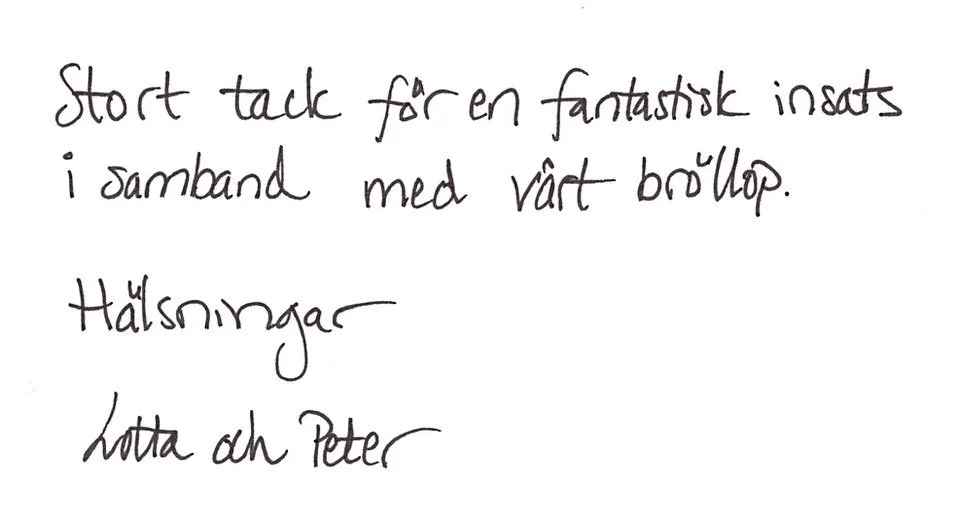 Stort tack för en fantastisk insats
i samband med vårt bröllop.
Hälsningar
Lotta och Peter